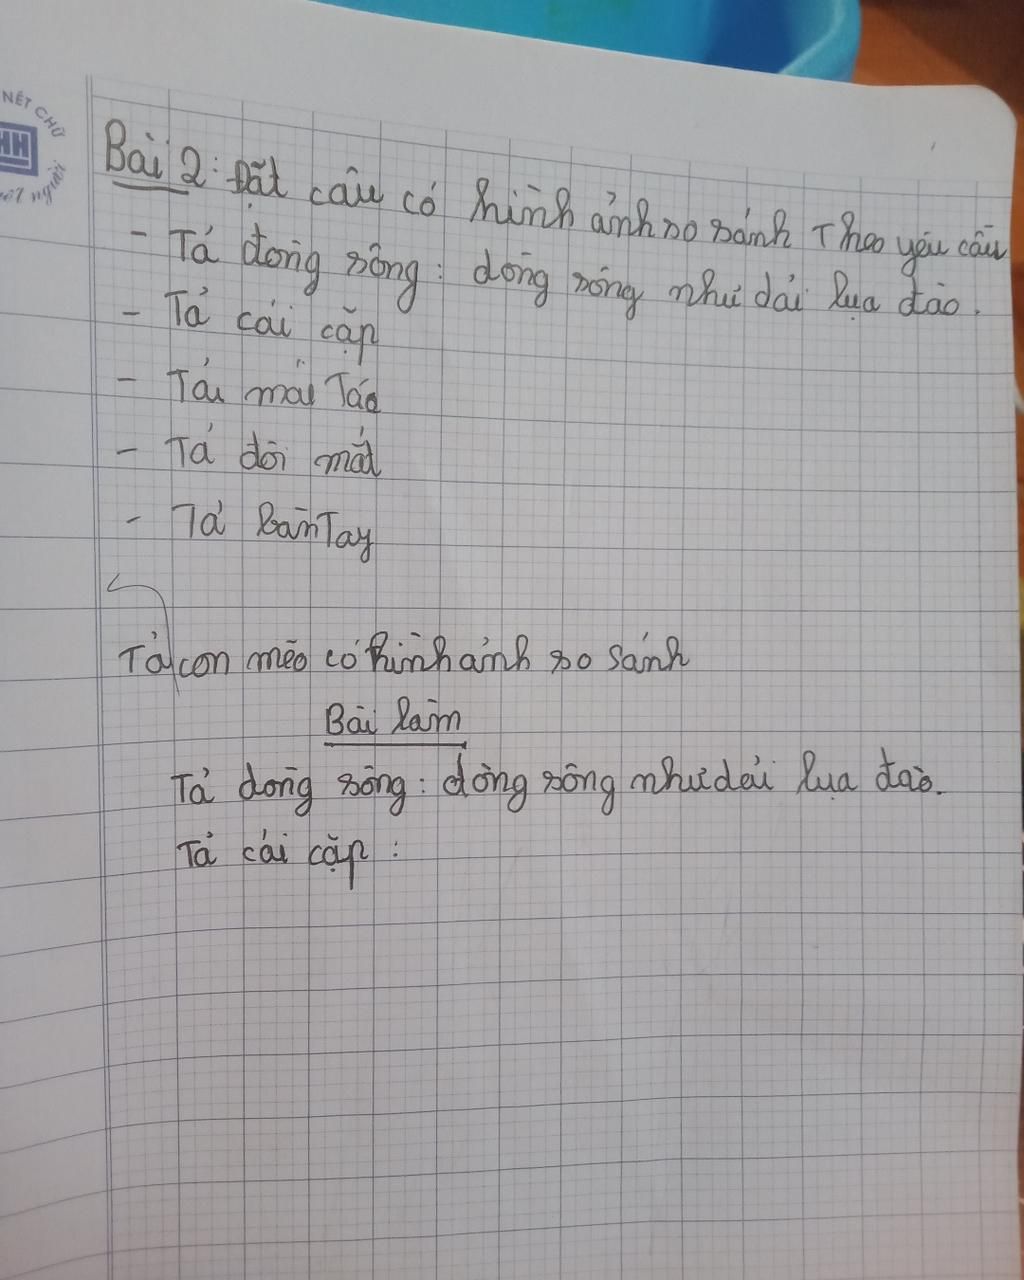 NÉT CHỮ
HH
nết người
Bài 2: Đặt câu có hình ảnh so sánh Theo yêu cầu
- Tả dòng sông: dòng sông như dải lụa đào.
- Tả cái cặp
- Tả mái Tóc
- Tả đôi mắt
- Tả bàn Tay
Tả con mèo có hình ảnh so sánh
Bài làm
Tả dòng sông: dòng sông như dải lụa đào.
Tả cái cặp: